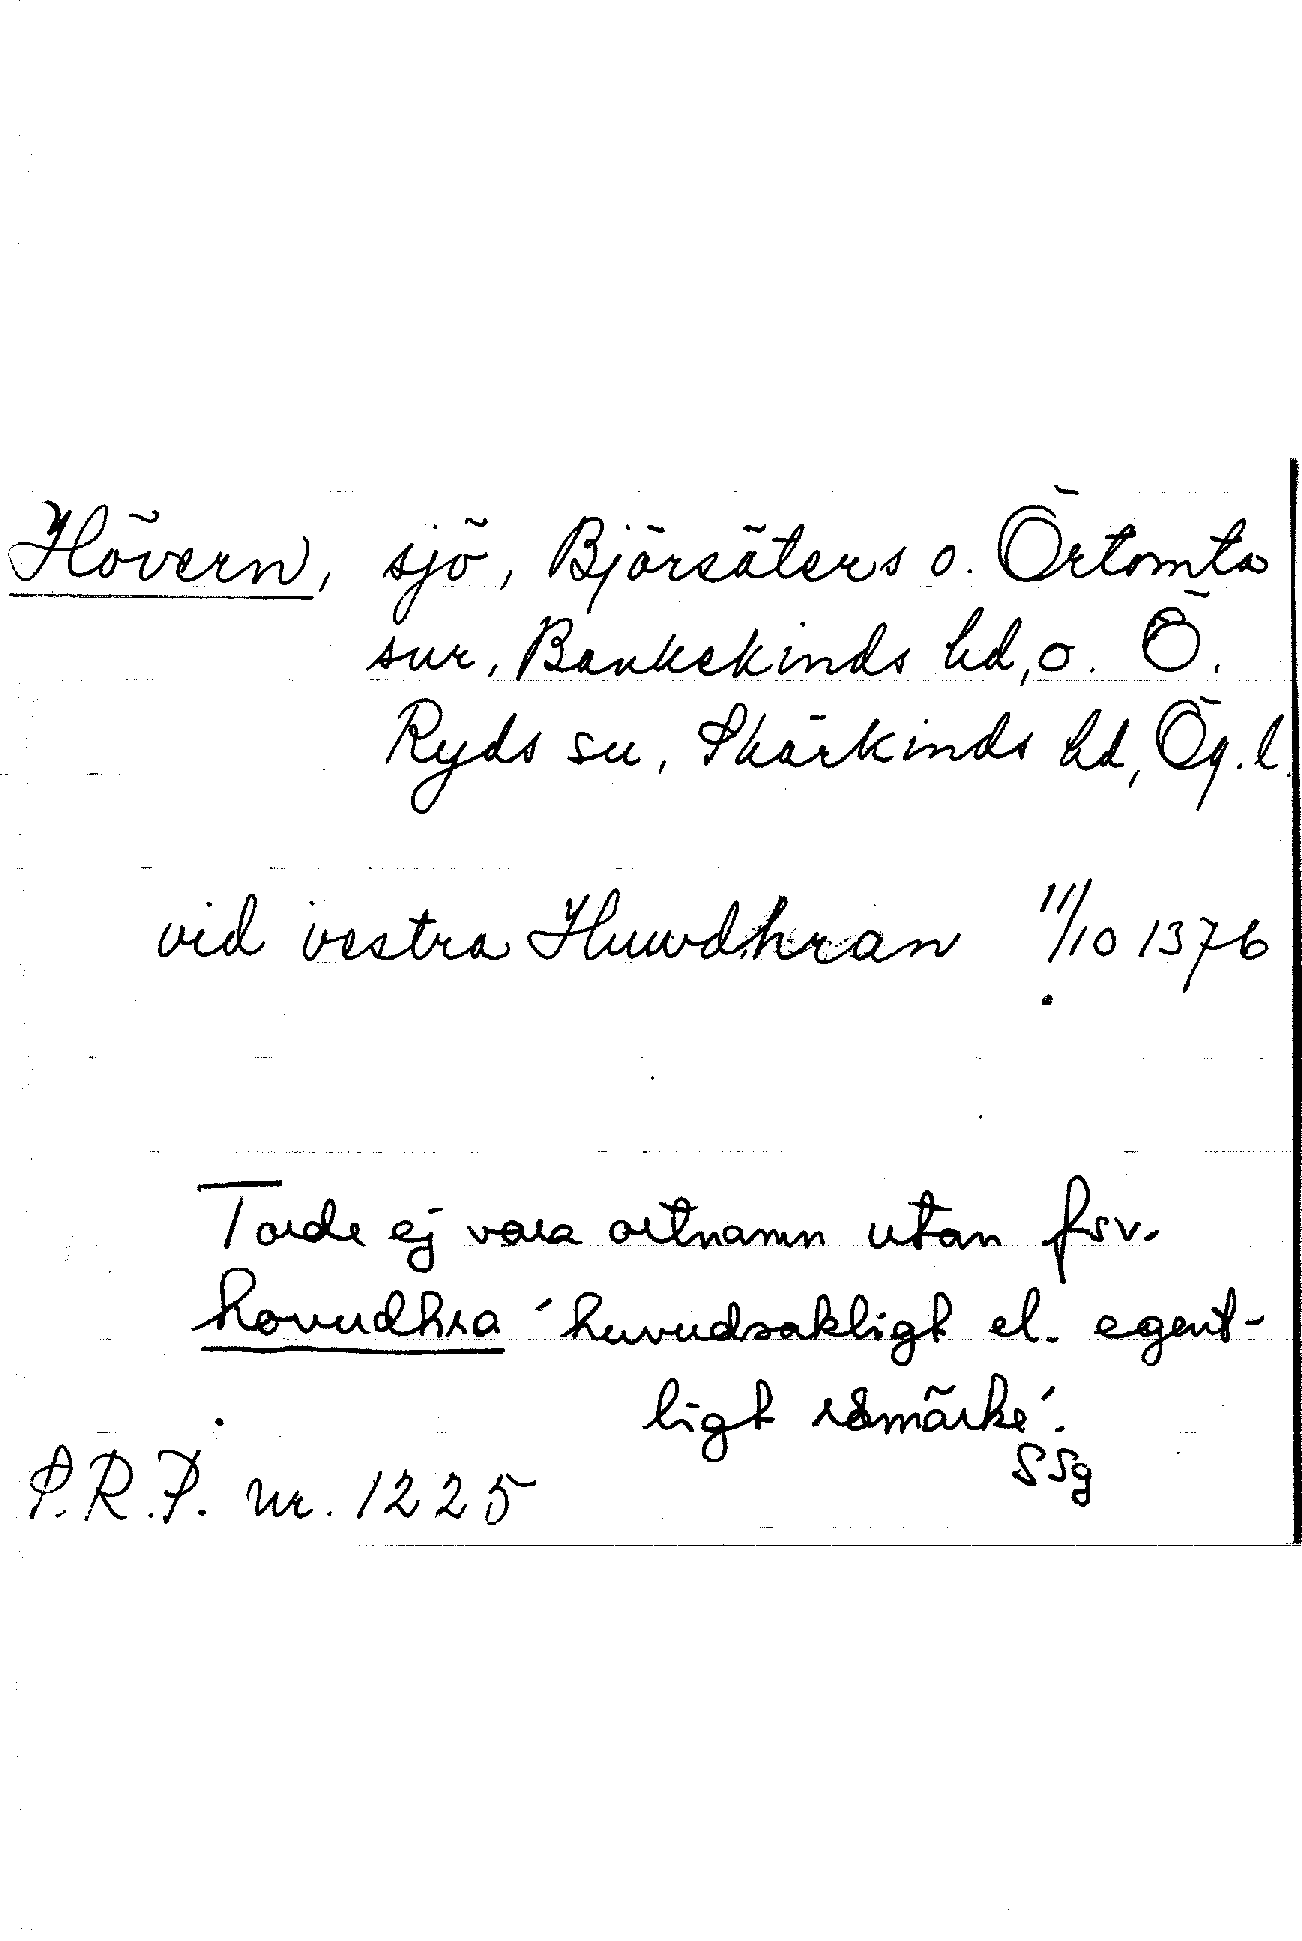 Hövern, sjö, Björsäters o. Örtomta
snr, Bankekinds hd, o. Ö.
Ryds sn, Skärkinds hd, Ög. l.
vid vestra Huwdhran 11/10 1376
Torde ej vara ortnamn utan fsv.
hovudhra 'huvudsakligt el. egent-
ligt råmärke'.
SSg
P.R.P. nr. 1225